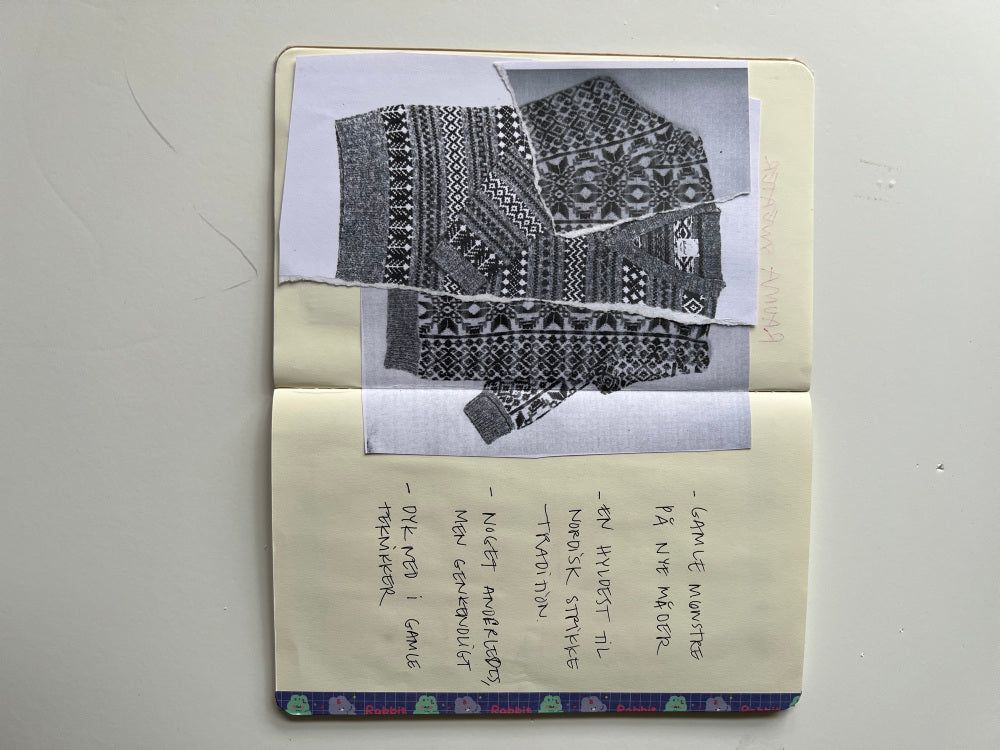 - GAMLE MØNSTRE
PÅ NYE MÅDER
- EN HYLDEST TIL
NORDISK STRIKKE
TRADITION.
- NOGET ANDERLEDES,
MEN GENKENDELIGT
- DYK NED I GAMLE
TEKNIKKER
Rabbit Rabbit Rabbit Rabbit